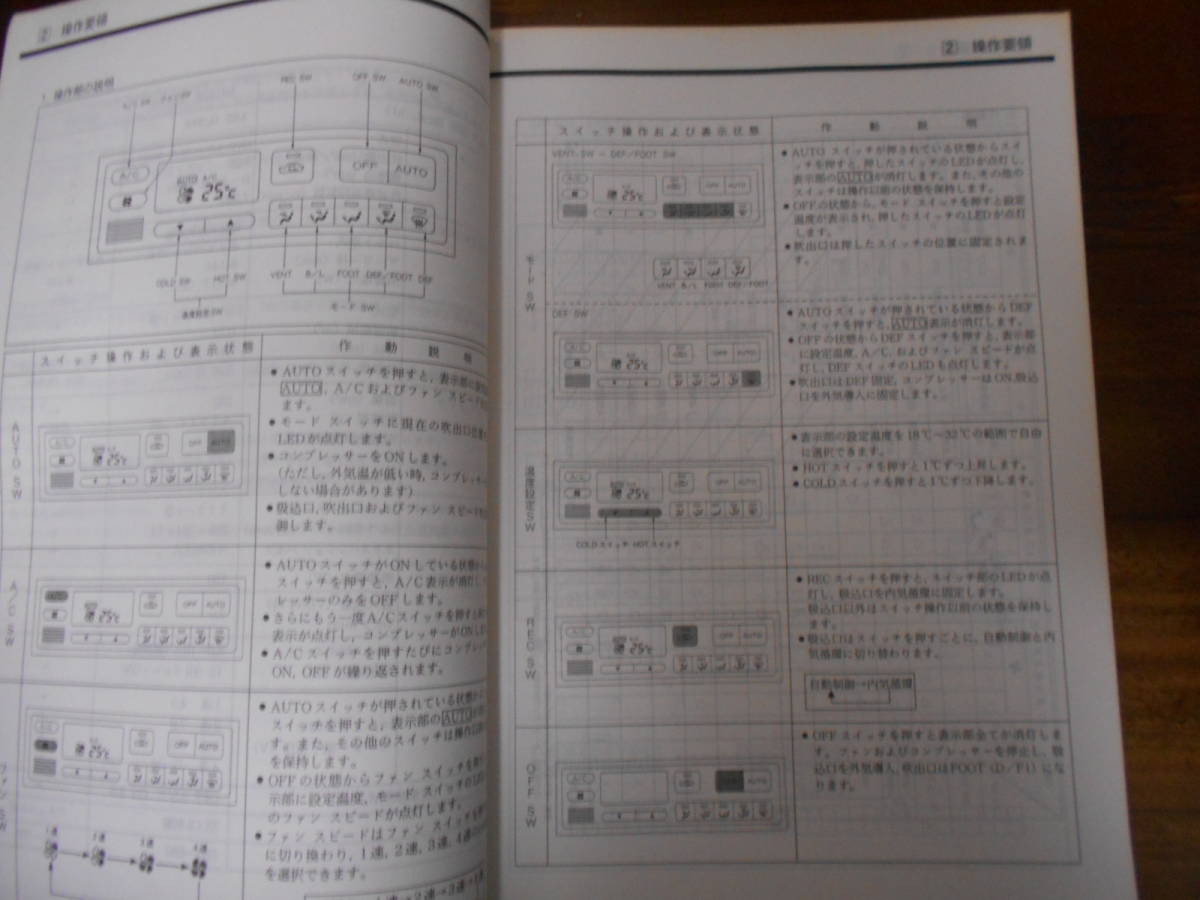 ② 操作要領
1. 操作部の説明
A/C SW ファンSW
REC SW
OFF SW
AUTO SW
A/C
AUTO A/C
25℃
OFF
AUTO
COLD SW HOT SW
温度設定SW
VENT B/L FOOT DEF/FOOT DEF
モード SW
スイッチ操作および表示状態
作動説明
AUTO SW
● AUTOスイッチを押すと，表示部に
AUTO，A/Cおよびファン スピード
ます。
● モード スイッチに現在の吹出口
LEDが点灯します。
● コンプレッサーをONします。
(ただし，外気温が低い時，コンプレッサー
しない場合があります)
● 吸込口，吹出口およびファン スピード
御します。
A/C SW
● AUTOスイッチがONしている状態
スイッチを押すと，A/C表示が消灯し，
レッサーのみをOFFします。
● さらにもう一度A/Cスイッチを押すと
表示が点灯し，コンプレッサーがON
● A/Cスイッチを押すたびにコンプレッ
ON，OFFが繰り返されます。
ファン SW
● AUTOスイッチが押されている状態
スイッチを押すと，表示部のAUTO
す。また，その他のスイッチは操作
を保持します。
● OFFの状態からファン スイッチを
示部に設定温度，モード スイッチの
のファン スピードが点灯します。
● ファン スピードはファン スイッチを
に切り換わり，1速，2速，3速，4速
を選択できます。
1速 2速 3速 4速
② 操作要領
スイッチ操作および表示状態
作動説明
モード SW
VENT SW － DEF/FOOT SW
VENT B/L FOOT DEF/FOOT
● AUTOスイッチが押されている状態からスイ
ッチを押すと，押したスイッチのLEDが点灯し，
表示部のAUTOが消灯します。また，その他の
スイッチは操作以前の状態を保持します。
● OFFの状態から，モード スイッチを押すと設定
温度が表示され，押したスイッチのLEDが点灯
します。
● 吹出口は押したスイッチの位置に固定されま
す。
DEF SW
● AUTOスイッチが押されている状態からDEF
スイッチを押すと，AUTO表示が消灯します。
● OFFの状態からDEFスイッチを押すと，表示部
に設定温度，A/C，およびファン スピードが点
灯し，DEFスイッチのLEDも点灯します。
● 吹出口はDEF固定，コンプレッサーはON，吸込
口を外気導入に固定します。
温度設定SW
COLDスイッチ HOTスイッチ
● 表示部の設定温度を18℃～32℃の範囲で自由
に選択できます。
● HOTスイッチを押すと1℃ずつ上昇します。
● COLDスイッチを押すと1℃ずつ下降します。
REC SW
● RECスイッチを押すと，スイッチ部のLEDが点
灯し，吸込口を内気循環に固定します。
吸込口以外はスイッチ操作以前の状態を保持し
ます。
● 吸込口はスイッチを押すごとに，自動制御と内
気循環に切り替わります。
自動制御→内気循環
OFF SW
● OFFスイッチを押すと表示部全てが消灯しま
す。ファンおよびコンプレッサーを停止し，吸
込口を外気導入，吹出口はFOOT（D/F1）にな
ります。